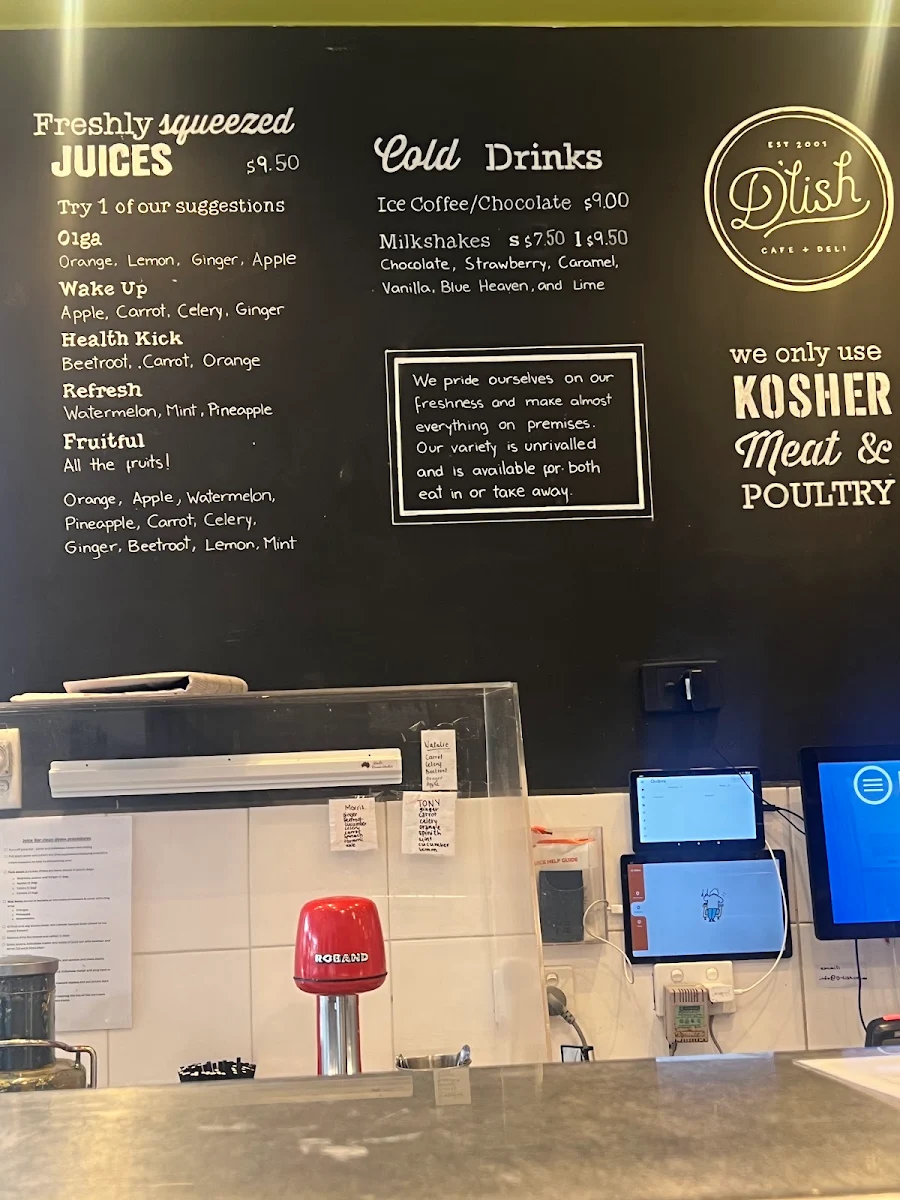 Freshly squeezed
JUICES $9.50
Try 1 of our suggestions
Olga
Orange, Lemon, Ginger, Apple
Wake Up
Apple, Carrot, Celery, Ginger
Health Kick
Beetroot, Carrot, Orange
Refresh
Watermelon, Mint, Pineapple
Fruitful
All the fruits!
Orange, Apple, Watermelon,
Pineapple, Carrot, Celery,
Ginger, Beetroot, Lemon, Mint
Cold Drinks
Ice Coffee/Chocolate $9.00
Milkshakes s $7.50 l $9.50
Chocolate, Strawberry, Caramel,
Vanilla, Blue Heaven, and Lime
We pride ourselves on our
freshness and make almost
everything on premises.
Our variety is unrivalled
and is available for both
eat in or take away.
EST 2001
D'lish
CAFE + DELI
we only use
KOSHER
Meat &
POULTRY
Natalie
Carrot
Celery
Beetroot
Apple
Morris
ginger
cucumber
celery
carrot
TONY
ginger
carrot
celery
orange
mint
cucumber
lemon
HELP GUIDE
ROBAND